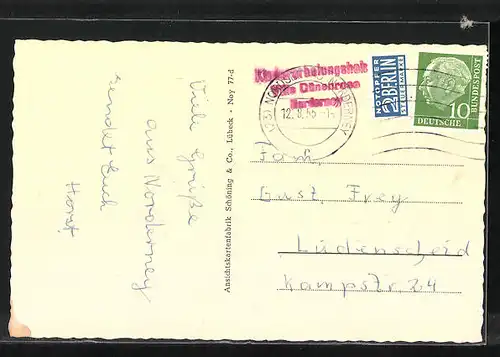 Viele Grüße
aus Norderney
sendet Euch
Horst
Ansichtskartenfabrik Schöning & Co., Lübeck · Noy 77-d
Kindererholungsheim
Haus Dünenrose
Norderney
(23) NORDERNEY
NOTOPFER
2 BERLIN
STEUERMARKE
DEUTSCHE
BUNDESPOST
10
Fam.
Gust. Frey
Lüdenscheid
Kampstr. 24